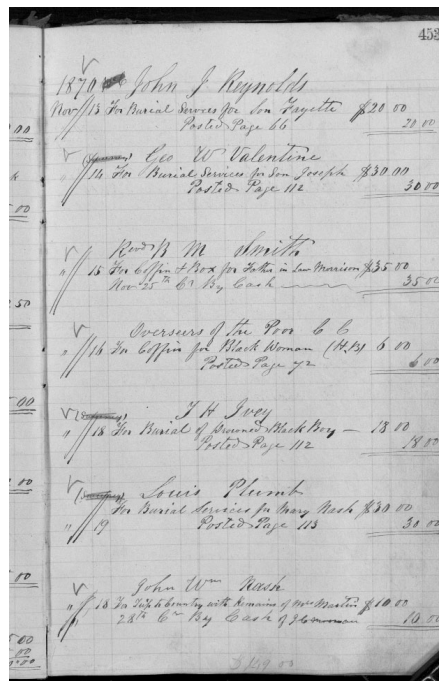 453
1870 John J Reynolds
Nov 13 For Burial Services for Son Fayette $20 00
Posted Page 66 20 00
Geo W Valentine
" 14 For Burial Services for Son Joseph $30 00
Posted Page 112 30 00
Revd R M Smith
" 15 For Coffin & Box for Father in Law Morrison $35 00
Nov 25th Cr By Cash 35 00
Overseers of the Poor C C
" 16 For Coffin for Black Woman (H.B) 6 00
Posted Page 72 6 00
T H Ivey
" 18 For Burial of drowned Black Boy — 18 00
Posted Page 112 18 00
Louis Plumb
For Burial Services for Mary Nash $30 00
" 19 Posted Page 113 30 00
John Wm Nash
" 18 For Trip to Country with Remains of Mrs Martin $10 00
28th Cr By Cash of 10 00
149 00